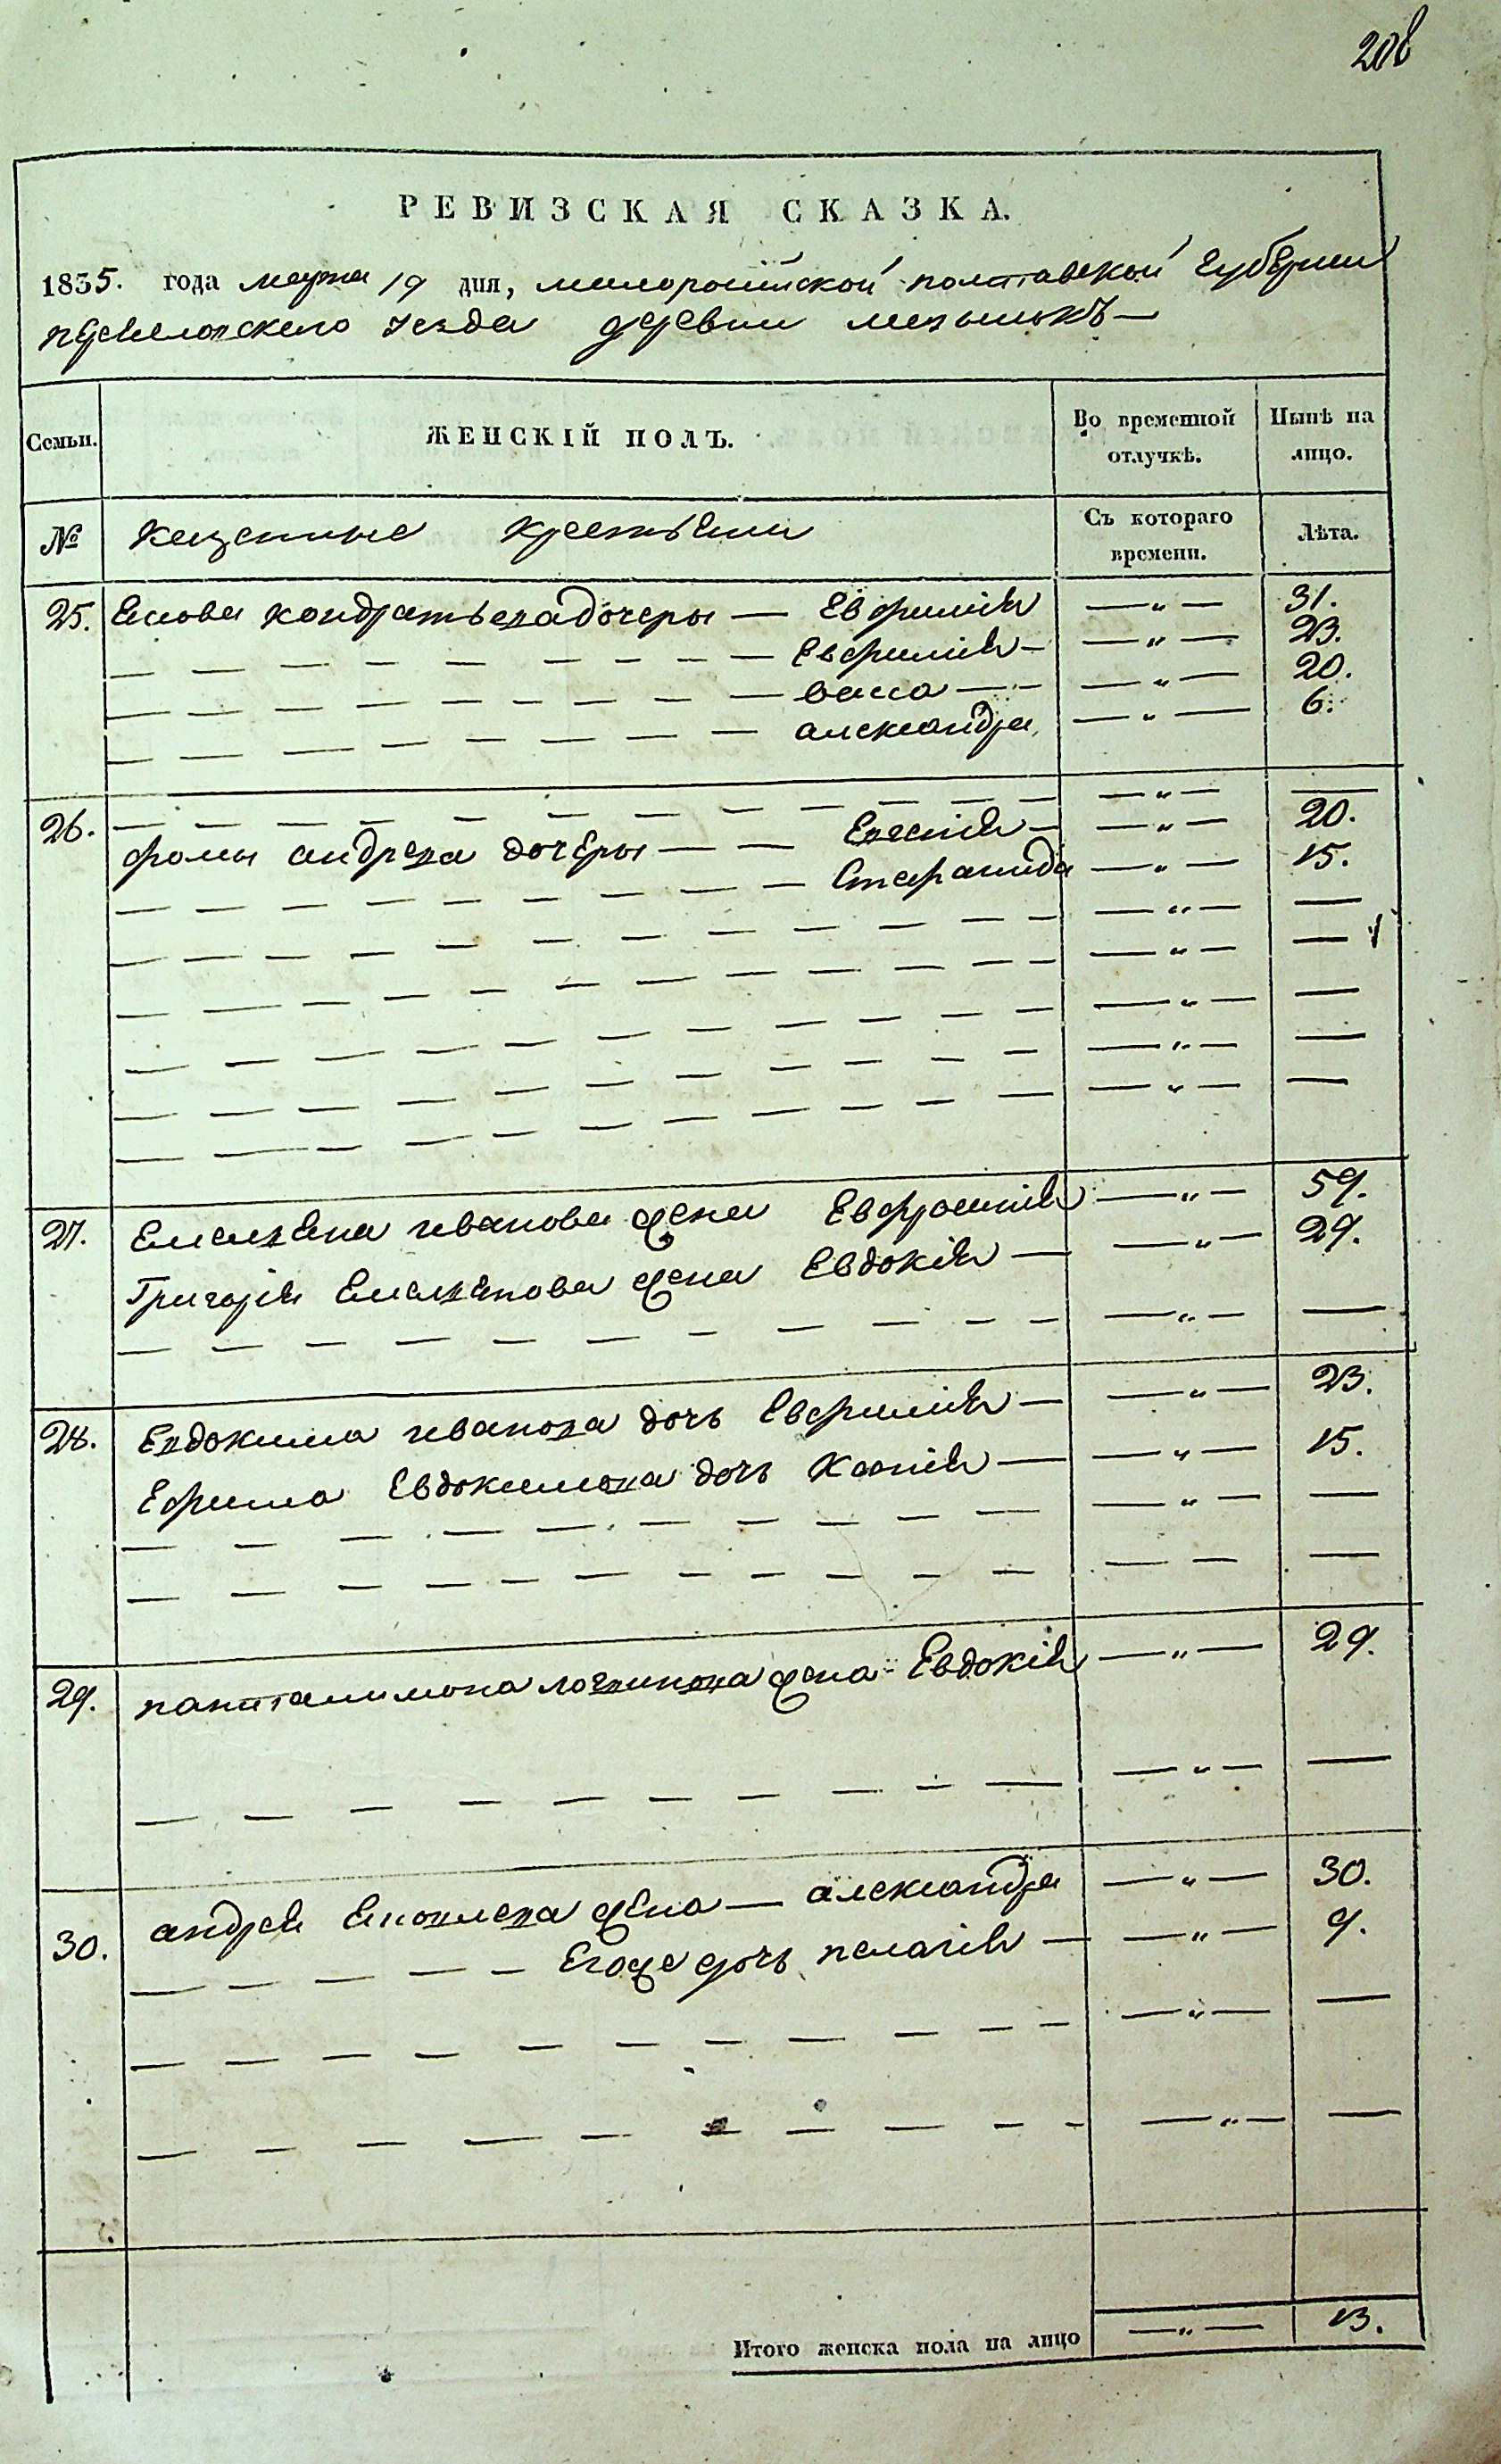 208
РЕВИЗСКАЯ СКАЗКА.
1835. года марта 19 дня, малоросийской полтавской губернии
уезда деревни
Семьи. ЖЕНСКІЙ ПОЛЪ. Во временной отлучкѣ. Нынѣ на лицо.
№ казенные крестьяни Съ котораго времени. Лѣта.
25. кондратьева дочеры — Евфимія — „ — 31.
— — — — — — — — Евфимія — — „ — 23.
— — — — — — — — васса — — — „ — 20.
— — — — — — — — александра — „ — 6.
26. — — — — — — — — — — — — „ — —
фомы андреева дочеры — — — „ — 20.
— — — — — — — — Стефанида — „ — 15.
— — — — — — — — — — — „ — —
— — — — — — — — — — — „ — —
— — — — — — — — — — — „ — —
— — — — — — — — — — — „ — —
— — — — — — — — — — — „ — —
27. Емельяна иванова жена Евфросинія — „ — 59.
Григорія Емельянова жена Евдокія — — „ — 29.
— — — — — — — — — — — „ — —
28. Евдокима иванова дочь Евфимія — — „ — 23.
Ефима Евдокимова дочь — — „ — 15.
— — — — — — — — — — — „ — —
— — — — — — — — — — — — —
29. пантталимона логвинова жена - Евдокія — „ — 29.
— — — — — — — — — — „ — —
30. андрея жена — александра — „ — 30.
— — — — — Егоже дочь пелагія — — „ — 9.
— — — — — — — — — — — „ — —
— — — — — — — — — — — „ — —
Итого женска пола на лицо — „ — 13.